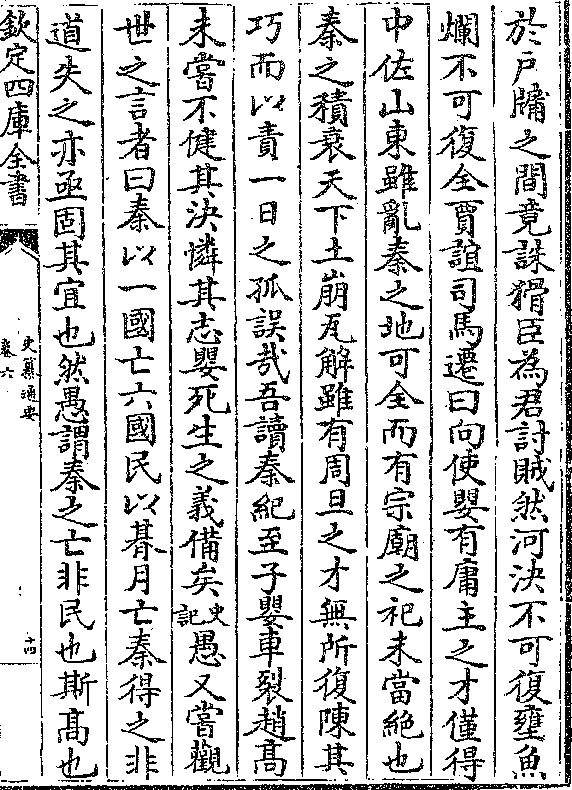 於戸牖之間竟誅猾臣為君討賊然河決不可復壅魚
爛不可復全賈誼司馬遷曰向使嬰有庸主之才僅得
中佐山東雖亂秦之地可全而有宗廟之祀未當絶也
秦之積衰天下土崩瓦解雖有周旦之才無所復陳其
巧而以責一日之孤誤哉吾讀秦紀至子嬰車裂趙髙
未嘗不健其決憐其志嬰死生之義備矣史記愚又嘗觀
世之言者曰秦以一國亡六國民以朞月亡秦得之非
道失之亦亟固其宜也然愚謂秦之亡非民也斯髙也
欽定四庫全書
史纂通要
卷六
十四